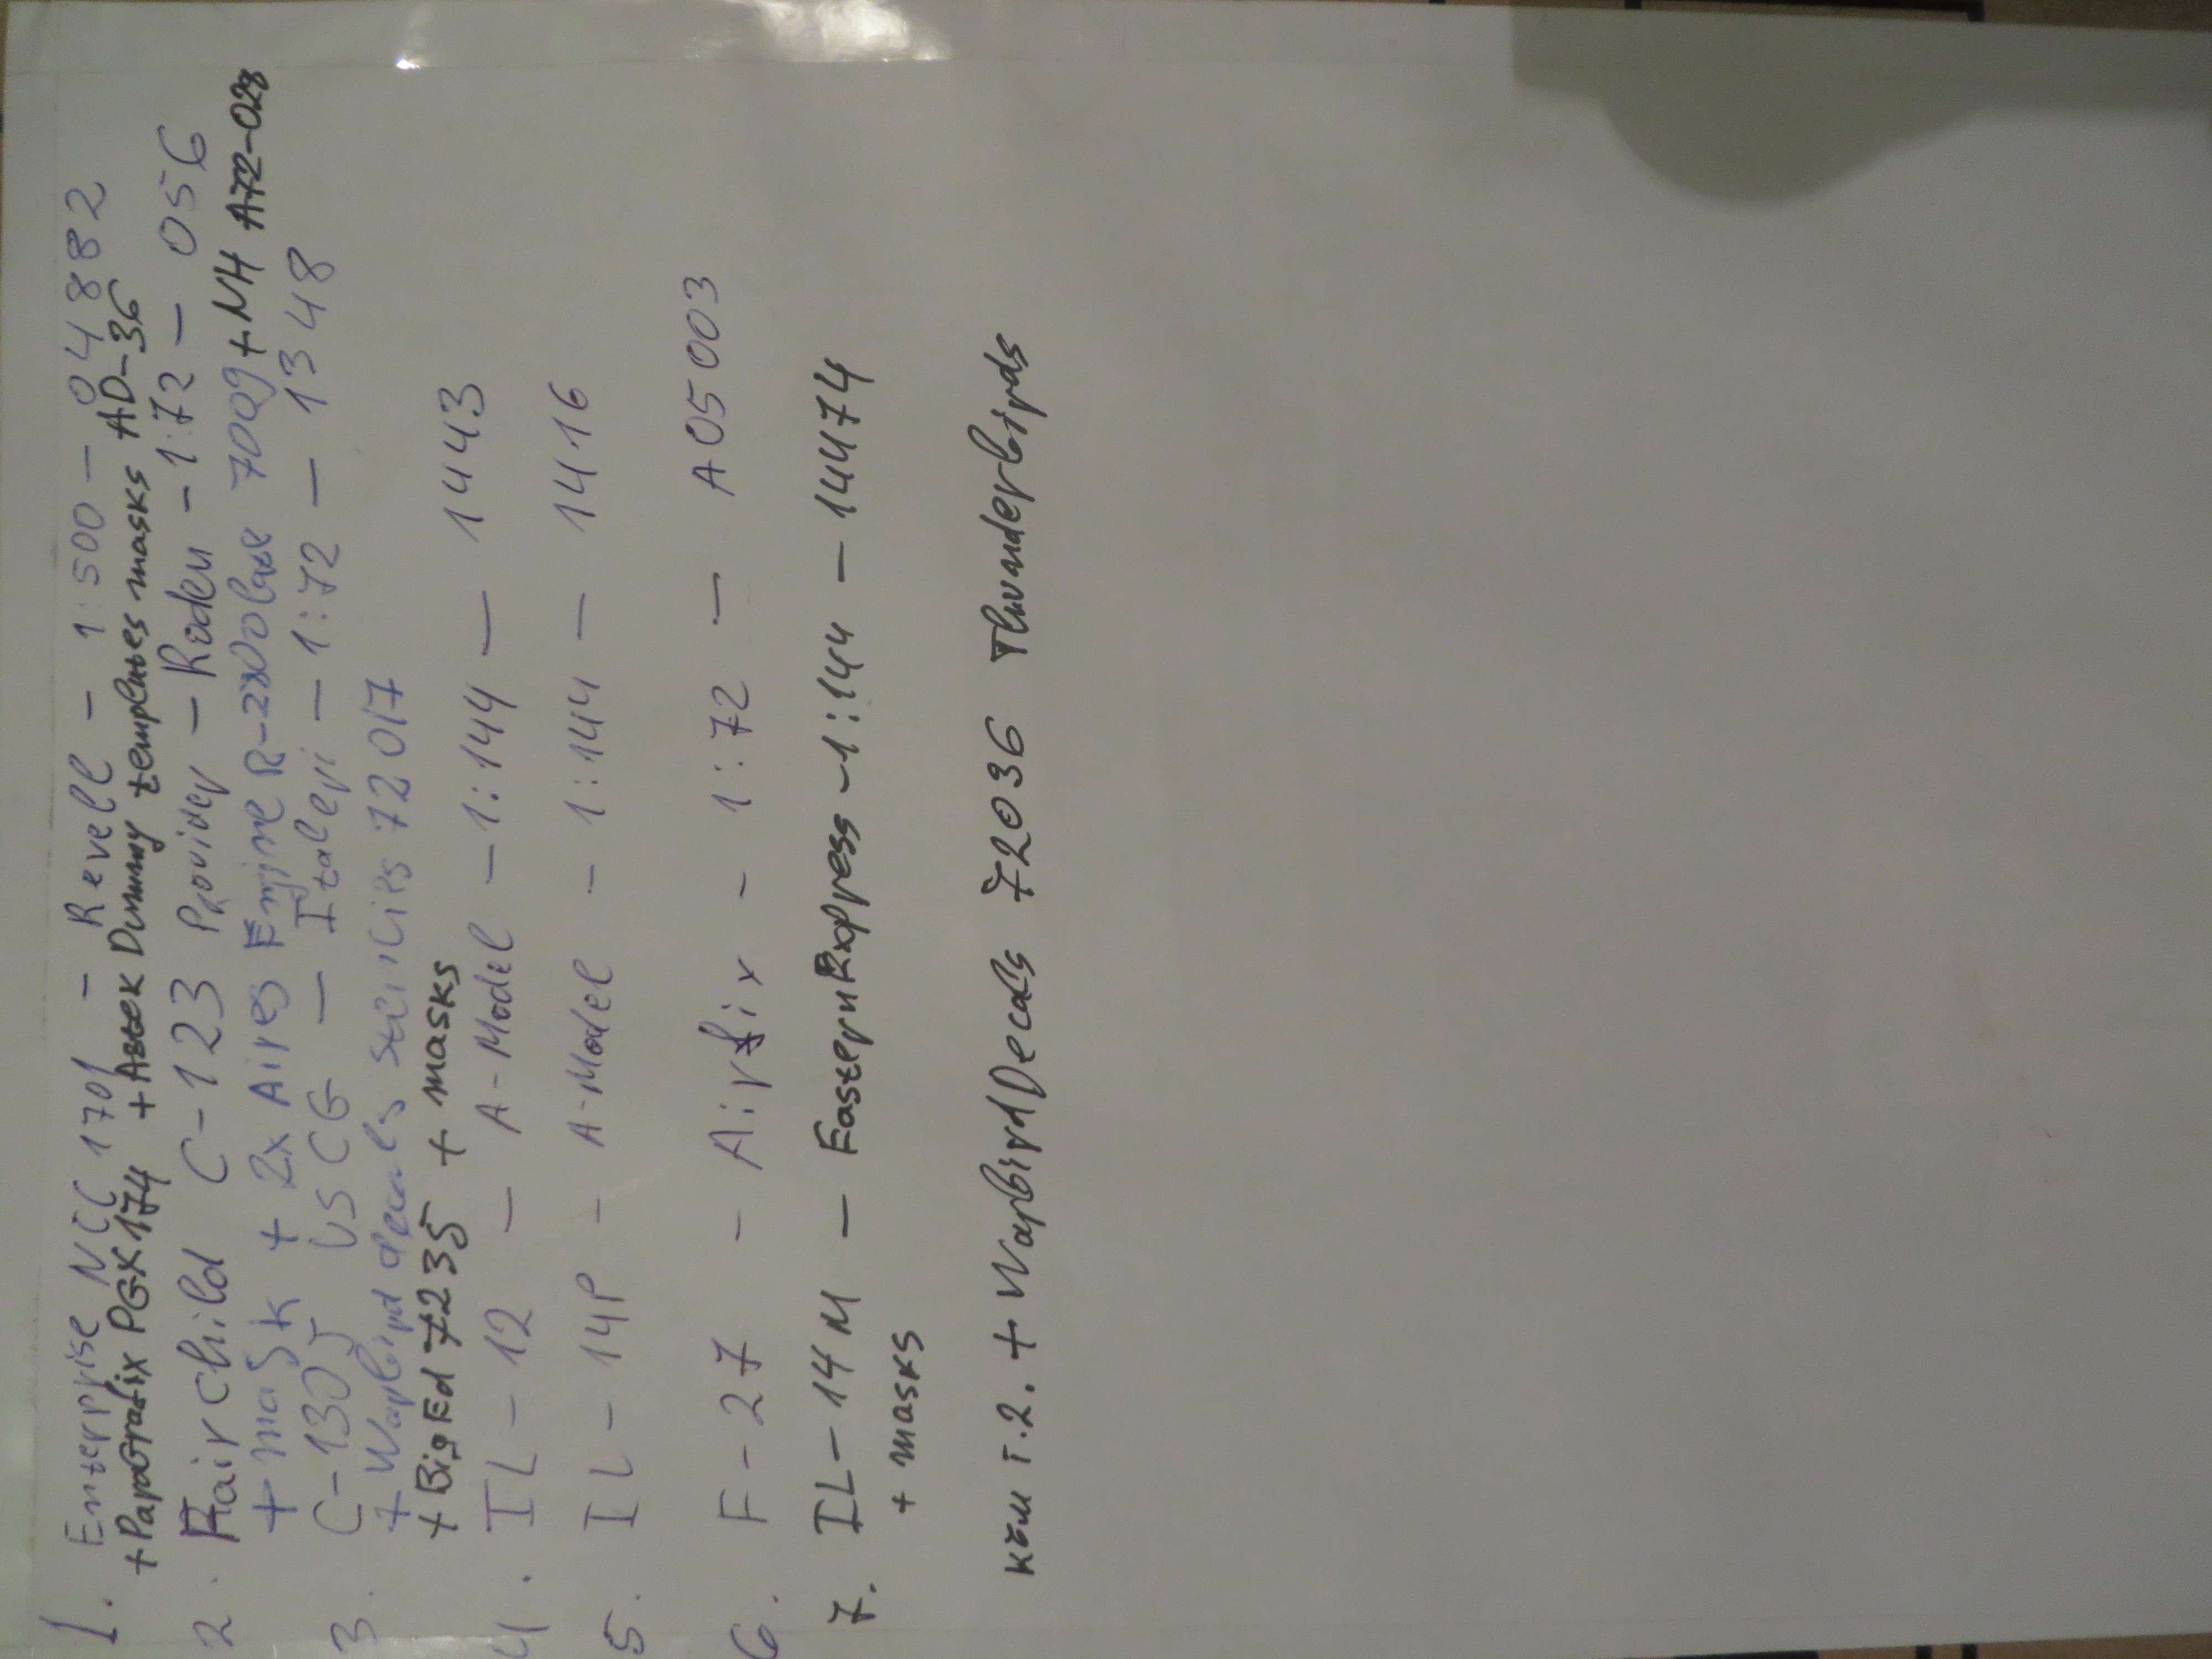 1. Enterprise NCC 1701 – Revell – 1:500 – 04882
+ ParaGrafix PGX174 + Aztek Dummy templates masks AD-36
2. Fairchild C-123 Provider – Roden – 1:72 – 056
+ mask + 2x Aires Engine R-2800 7009 + NH A72-028
3. C-130J USCG – Italeri – 1:72 – 1348
+ Warbird decals 72017
+ BigEd 7235 + masks
4. IL-12 – A-Model – 1:144 – 1443
5. IL-14P – A-Model – 1:144 – 1416
6. F-27 – Airfix – 1:72 – A05003
7. IL-14M – Eastern Express – 1:144 – 14474
+ masks
към т.2. + WarbirdDecals 72036 Thunderbirds